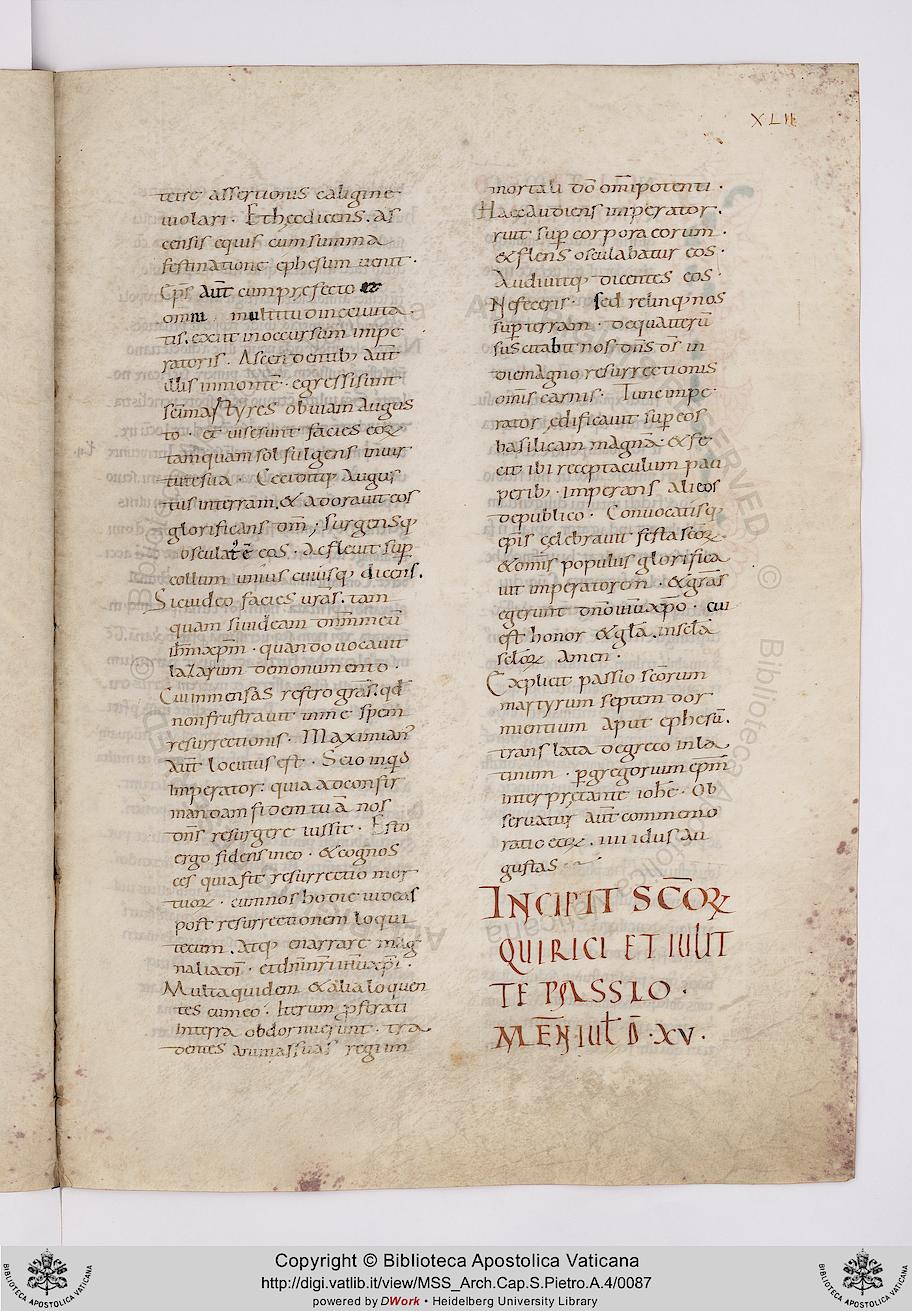 XLII
tetre assertionis caligine
violari · Et hec dicens · as
censis equis cum summa
festinatione ephesum uenit ·
Ep̄s aūt cum prefecto et
omni multitudine ciuita
tis · exiit in occursum impe
ratoris · Ascendentib; aūt
illis in monte · egressi sunt
sc̄i martyres obuiam augus
to · et uise sunt facies eoꝝ
tamquam sol fulgens in uir
tute sua · Ceciditq; augus
tus in terram · & adorauit eos
glorificans dm̄ ; surgensq;
osculat' ē eos · ac fleuit sup̄
collum unius cuiusq; dicens ·
Sic uideo facies ur̄as · tam
quam si uideam dn̄m meū
ih̄m xp̄m · quando uocauit
lazarum de monumento ·
Cui immensas refero grās · qd̄
non frustrauit in me spem
resurrectionis · Maximian'
aūt locutus est · Scio inqd
imperator · quia ad confir
mandam fidem tuā nos
dn̄s resurgere iussit · Esto
ergo fidens in eo · & cognos
ces quia fit resurrectio mor
tuoꝝ · cum nos hodie uideas
post resurrectionem loqui
tecum · atq; enarrare mag
nalia dī · et dn̄i nr̄i ih̄u xp̄i ·
Multa quidem & alia loquen
tes cum eo · Iterum ꝓstrati
in terra obdormierunt · tra
dentes animas suas regi im
mortali dō om̄ipotenti ·
Haec audiens imperator ·
ruit sup̄ corpora eorum ·
& flens osculabatur eos ·
Audiuitq; dicentes eos ·
Ne feceris · sed relinq; nos
sup̄ terram · de qua iterū
suscitabit nos dn̄s dr̄ in
die magno resurrectionis
om̄is carnis · Tunc impe
rator edificauit sup̄ eos
basilicam magnā · & fe
cit ibi receptaculum pau
perib; · imperans ali eos
de publico · Conuocatisq;
ep̄is celebrauit festa sc̄oꝝ
& om̄is populus glorifica
uit imperatorem · & grās
egerunt dn̄o ih̄u xp̄o · cui
est honor & glā · in sclā
sclōꝝ amen ·
Explicit passio sc̄orum
martyrum septem dor
mientium aput ephesū ·
translata de greco in la
tinum · ꝑ gregorium ep̄m
interpretante ioh̄e · Ob
seruatur aūt commemo
ratio eoꝝ · iiii idus au
gustas
INCIPIT SC̄OꝜ
QUIRICI ET IULIT
TE PASSIO ·
MĒN IUL̄ D̄ · XV ·
Copyright © Biblioteca Apostolica Vaticana
http://digi.vatlib.it/view/MSS_Arch.Cap.S.Pietro.A.4/0087
powered by DWork • Heidelberg University Library